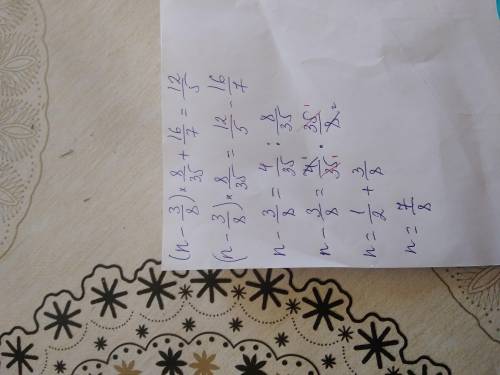 (n - 3/8) × 8/35 + 16/7 = 12/5
(n - 3/8) × 8/35 = 12/5 - 16/7
n - 3/8 = 4/35 : 8/35
n - 3/8 = 4 1/35 1 · 35 1/8 2
n = 1/2 + 3/8
n = 7/8